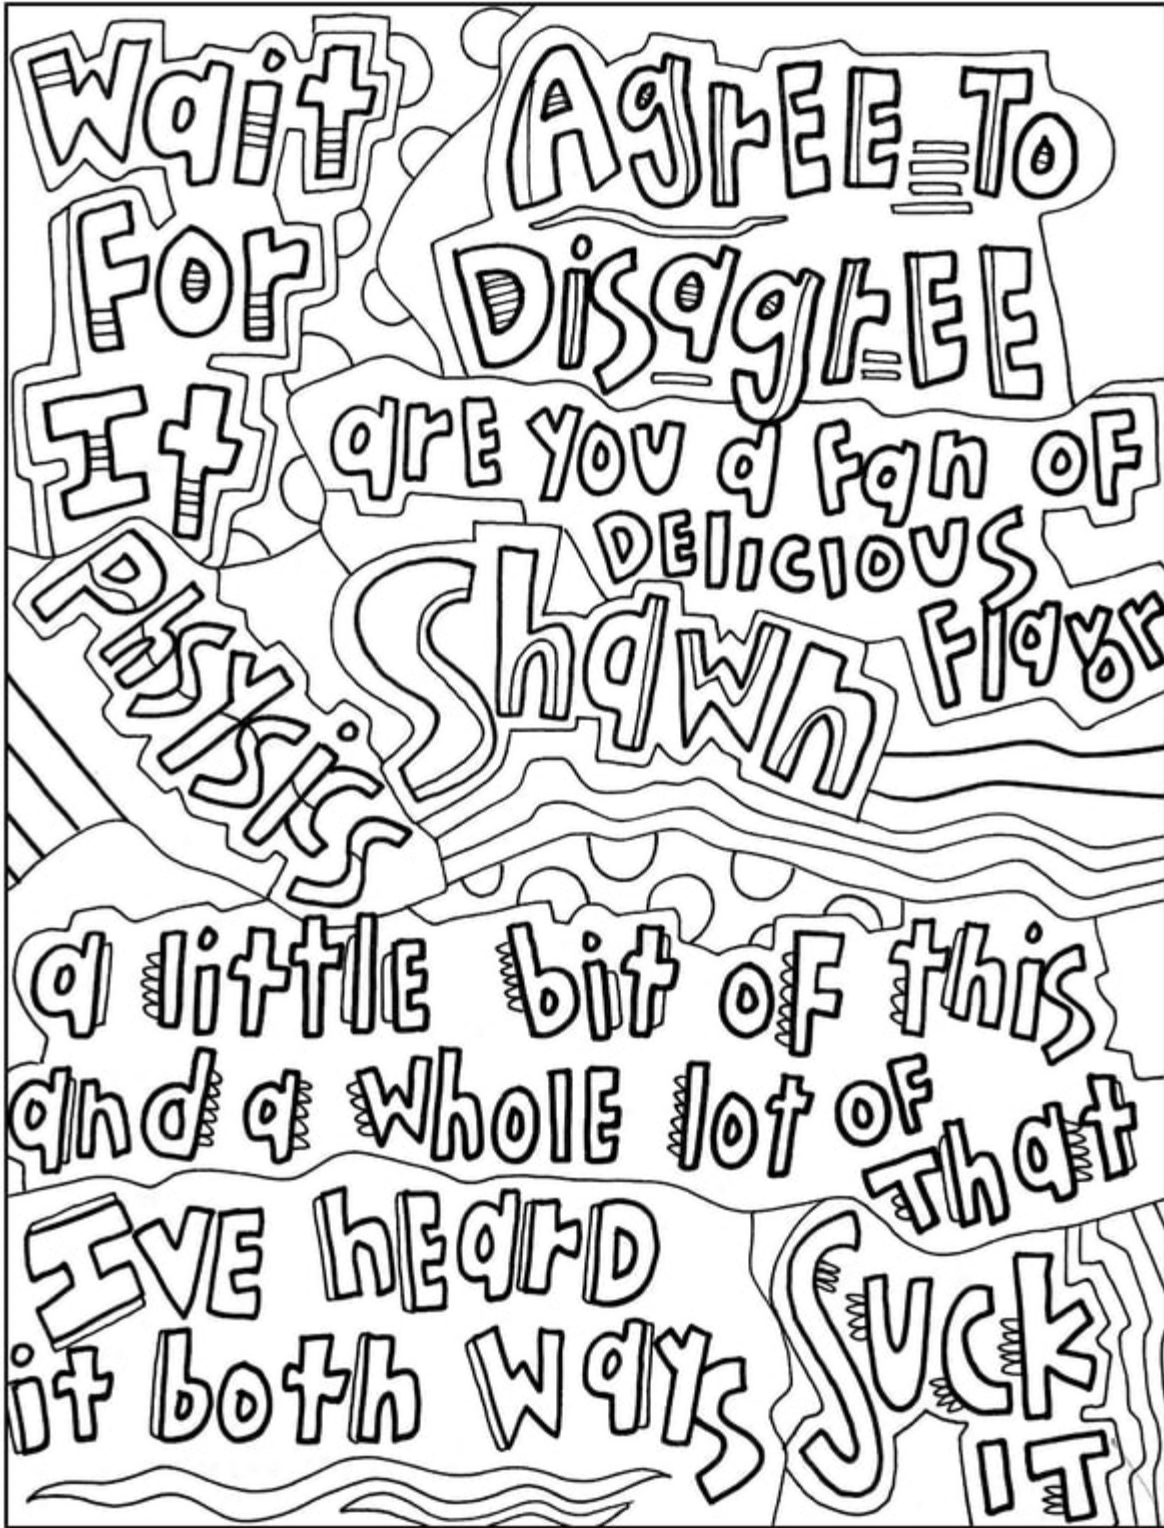 Wait
For
It
AgrEE To
DisagrEE
arE YOU a Fan OF
DElicioUS
Flavor
PhSYSiCS
Shawn
a littlE bit oF this
and a wholE lot oF
That
IVE hEarD
it both ways
SUCK
IT